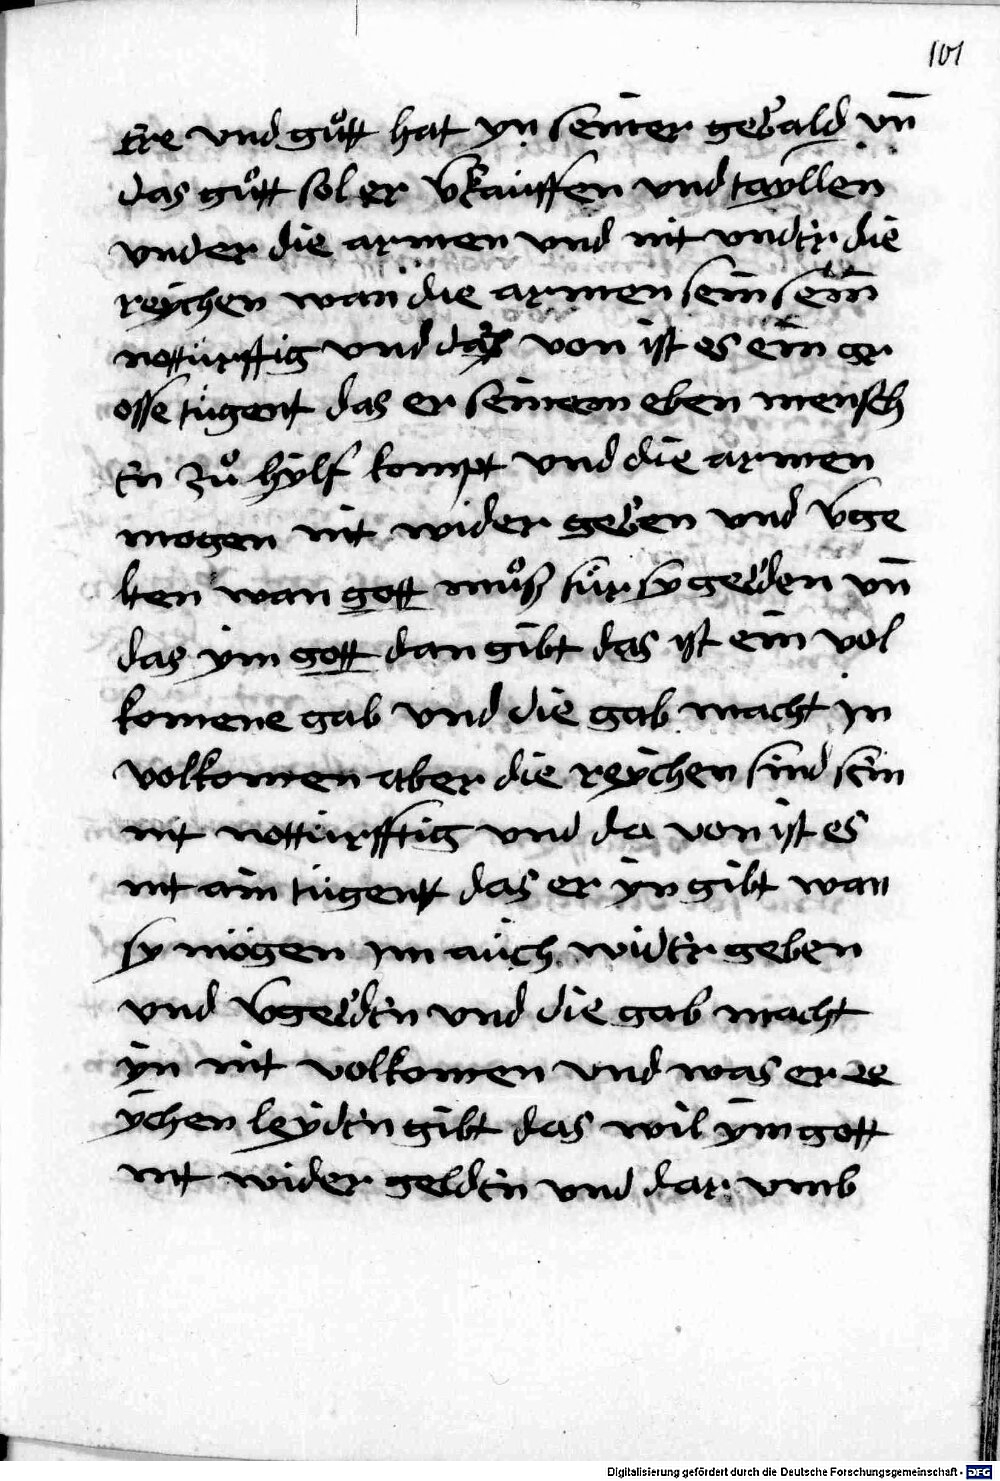 101
Ere und gůtt hat yn seiner gewald un̄
das gůtt sol er v̄kauffen und tayllen
under die armen und nit under die
reychen wan die armen sein sein
notturfftig und da von ist es ein gr
osse tugent das er seinem eben mensch
en zů hylf kompt und die armen
mogen nit wider geben und v̄ge
lten wan gott můß fur sy gelden un̄
das ym gott dan gibt das ist ein vol
komene gab und die gab macht in
volkomen aber die reychen sind sein
nit notturfftig und da von ist es
nit ain tugent das er yn gibt wan
sy mögen im auch wider geben
und v̄gelden und die gab macht
yn nit volkomen und was er re
ychen leyden gibt das wil ym gott
nit wider gelden und dar umb
Digitalisierung gefördert durch die Deutsche Forschungsgemeinschaft - DFG